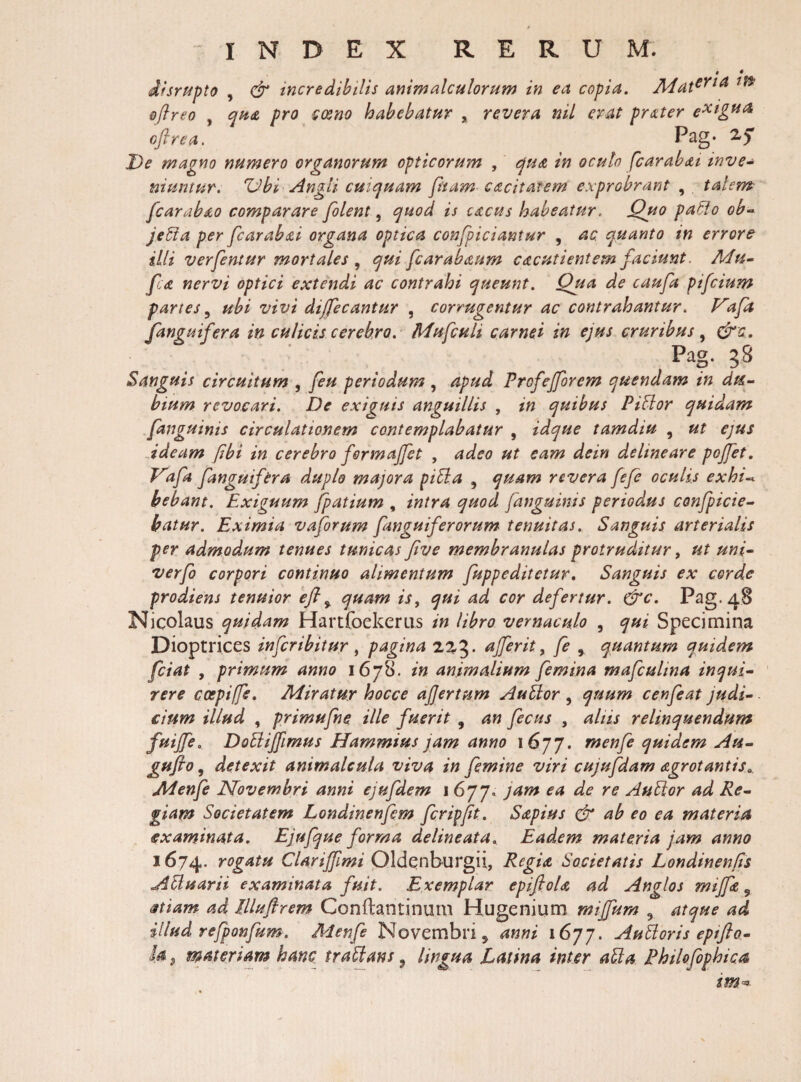 INDEX RERUM.
disrupto , & incredibilis animalculorum in ea copia. Materia in
oſtreo , quæ pro cœno habebatur , revera nil erat præter exigua
oſtrea. Pag. 25
De magno numero organorum opticorum , quæ in oculo ſcarabæi inve-
niuntur. Ubi Angli cuiquam ſuam cæcitatem exprobrant , talem
ſcarabæo comparare ſolent, quod is cæcus habeatur. Quo pacto ob-
jecta per ſcarabæi organa optica conſpiciantur , ac quanto in errore
illi verſentur mortales , qui ſcarabæum cæcutientem faciunt. Mu-
ſcæ nervi optici extendi ac contrahi queunt. Qua de cauſa piſcium
partes, ubi vivi diſſecantur , corrugentur ac contrahantur. Vaſa
ſanguifera in culicis cerebro. Muſculi carnei in ejus cruribus, &c.
Pag. 38
Sanguis circuitum , ſeu periodum , apud Profeſſorem quendam in du-
bium revocari. De exiguis anguillis , in quibus Pictor quidam
ſanguinis circulationem contemplabatur , idque tamdiu , ut ejus
ideam ſibi in cerebro formaſſet , adeo ut eam dein delineare poſſet.
Vaſa ſanguifera duplo majora picta , quam revera ſeſe oculis exhi-
bebant. Exiguum ſpatium , intra quod ſanguinis periodus conſpicie-
batur. Eximia vaſorum ſanguiferorum tenuitas. Sanguis arterialis
per admodum tenues tunicas ſive membranulas protruditur, ut uni-
verſo corpori continuo alimentum ſuppeditetur. Sanguis ex corde
prodiens tenuior eſt, quam is, qui ad cor defertur. &c. Pag. 48
Nicolaus quidam Hartſoekerus in libro vernaculo , qui Specimina
Dioptrices inſcribitur, pagina 223. aſſerit, ſe , quantum quidem
ſciat , primum anno 1678. in animalium ſemina maſculina inqui-
rere cœpiſſe. Miratur hocce aſſertum Auctor , quum cenſeat judi-
cium illud , primuſne ille fuerit , an ſecus , aliis relinquendum
fuiſſe. Doctiſſimus Hammius jam anno 1677. menſe quidem Au-
guſto, detexit animalcula viva in ſemine viri cujuſdam ægrotantis.
Menſe Novembri anni ejuſdem 1677. jam ea de re Auctor ad Re-
giam Societatem Londinenſem ſcripſit. Sæpius & ab eo ea materia
examinata. Ejuſque forma delineata. Eadem materia jam anno
1674. rogatu Clariſſimi Oldenburgii, Regiæ Societatis Londinenſis
Actuarii examinata fuit. Exemplar epiſtolæ ad Anglos miſſæ,
etiam ad Illuſtrem Conſtantinum Hugenium miſſum , atque ad
illud reſponſum. Menſe Novembri, anni 1677. Auctoris epiſto-
la, materiam hanc tractans, lingua Latina inter acta Philoſophica
im-